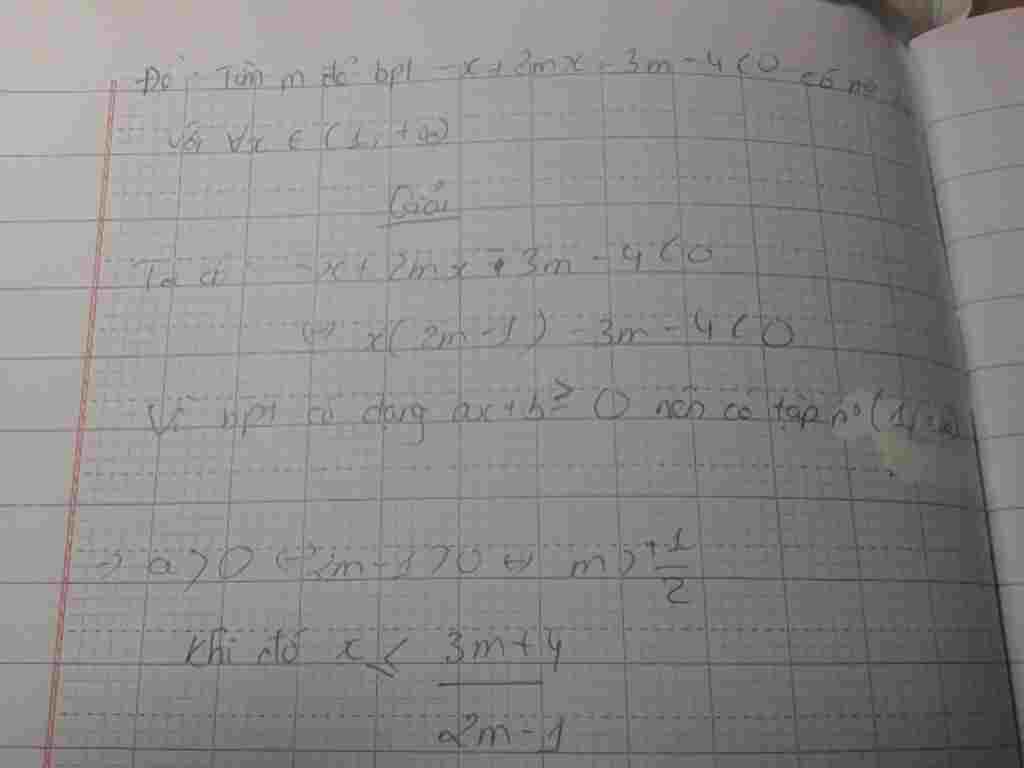 Đề: Tìm m để bpt -x + 2mx - 3m - 4 < 0 có no
với ∀x ∈ (1; +∞)
Giải
Ta có -x + 2mx + 3m - 4 < 0
⇔ x(2m - 1) - 3m - 4 < 0
Vì bpt có dạng ax + b ≥ 0 nên có tập no (1; +∞)
→ a > 0 ⇔ 2m - 1 > 0 ⇔ m > +1/2
Khi đó x ≤ 3m + 4 / 2m - 1